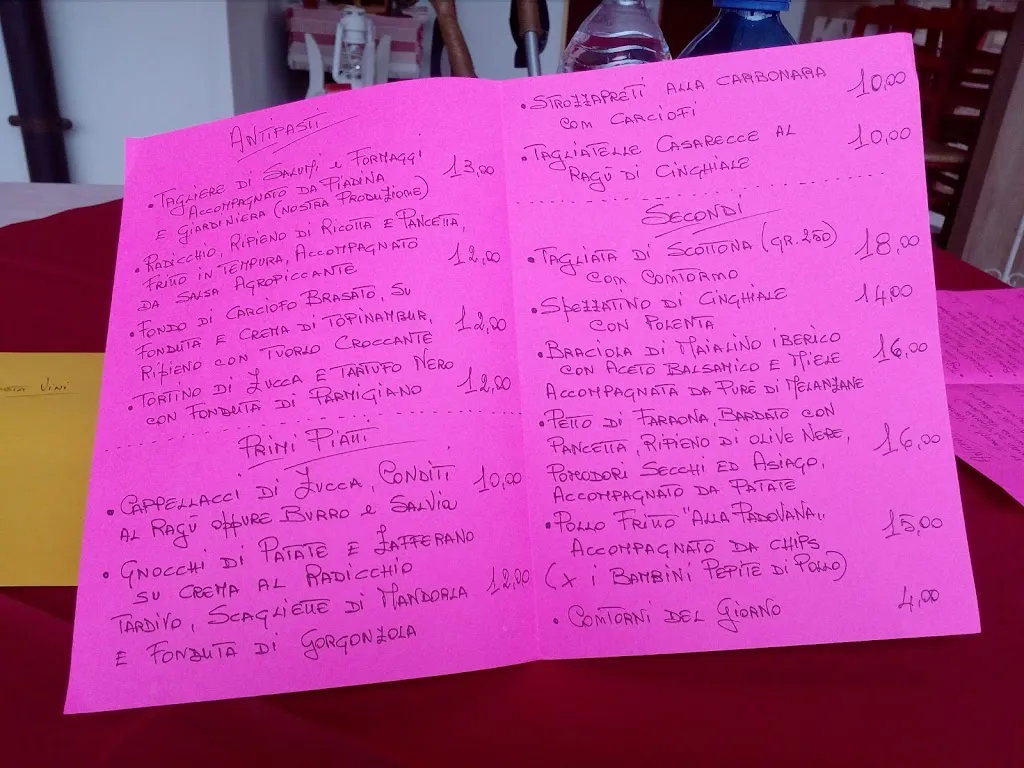 ANTIPASTI
• TAGLIERE DI SALUMI e FORMAGGI 13,00
ACCOMPAGNATO DA PIADINA
E GIARDINIERA (NOSTRA PRODUZIONE)
• RADICCHIO, RIPIENO DI RICOTTA E PANCETTA,
FRITTO IN TEMPURA, ACCOMPAGNATO 12,00
DA SALSA AGROPICCANTE
• FONDO DI CARCIOFO BRASATO, SU
FONDUTA E CREMA DI TOPINAMBUR, 12,00
RIPIENO CON TUORLO CROCCANTE
• TORTINO DI ZUCCA E TARTUFO NERO
CON FONDUTA DI PARMIGIANO 12,00
PRIMI PIATTI
• CAPPELLACCI DI ZUCCA, CONDITI 10,00
AL RAGÙ OPPURE BURRO e SALVIA
• GNOCCHI DI PATATE E ZAFFERANO
SU CREMA AL RADICCHIO
TARDIVO, SCAGLIETTE DI MANDORLA 12,00
E FONDUTA DI GORGONZOLA
• STROZZAPRETI ALLA CARBONARA 10,00
CON CARCIOFI
• TAGLIATELLE CASARECCE AL 10,00
RAGÙ DI CINGHIALE
SECONDI
• TAGLIATA DI SCOTTONA (GR. 250) 18,00
CON CONTORNO
• SPEZZATINO DI CINGHIALE 14,00
CON POLENTA
• BRACIOLA DI MAIALINO IBERICO
CON ACETO BALSAMICO E MIELE 16,00
ACCOMPAGNATA DA PURE DI MELANZANE
• PETTO DI FARAONA, BARDATO CON
PANCETTA, RIPIENO DI OLIVE NERE, 16,00
POMODORI SECCHI ED ASIAGO,
ACCOMPAGNATO DA PATATE
• POLLO FRITTO "ALLA PADOVANA„ 15,00
ACCOMPAGNATO DA CHIPS
(X I BAMBINI PEPITE DI POLLO)
• CONTORNI DEL GIORNO 4,00
VINI